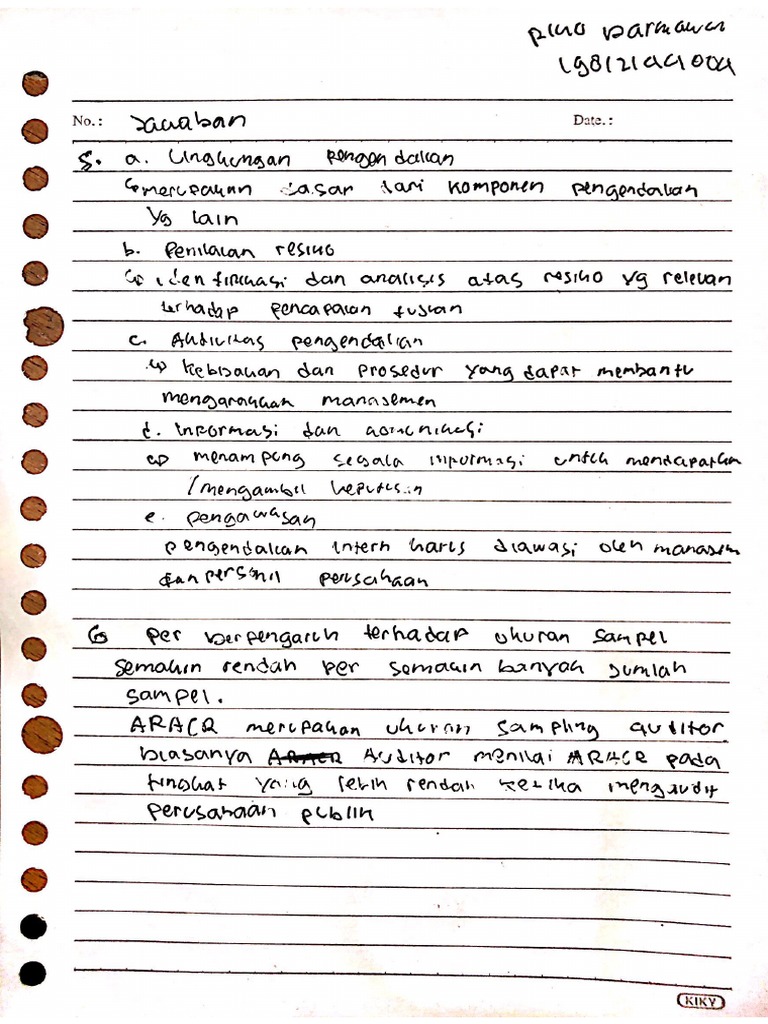 Darmawan
No.: Jawaban Date.:
5. a. Lingkungan pengendalian
↳ merupakan dasar dari komponen pengendalian
yg lain
b. Penilaian resiko
↳ identifikasi dan analisis atas resiko yg relevan
terhadap pencapaian tujuan
c. Aktivitas pengendalian
↳ Kebijakan dan prosedur yang dapat membantu
mengarahkan manajemen
d. Informasi dan komunikasi
↳ menampung segala informasi untuk mendapatkan
/mengambil keputusan
e. pengawasan
pengendalian intern harus diawasi oleh manajem
dan personil perusahaan
6 PER berpengaruh terhadap ukuran sampel
semakin rendah PER semakin banyak jumlah
sampel.
ARACR merupakan ukuran sampling auditor
biasanya Auditor menilai ARACR pada
tingkat yang lebih rendah ketika mengaudit
perusahaan publik
KIKY